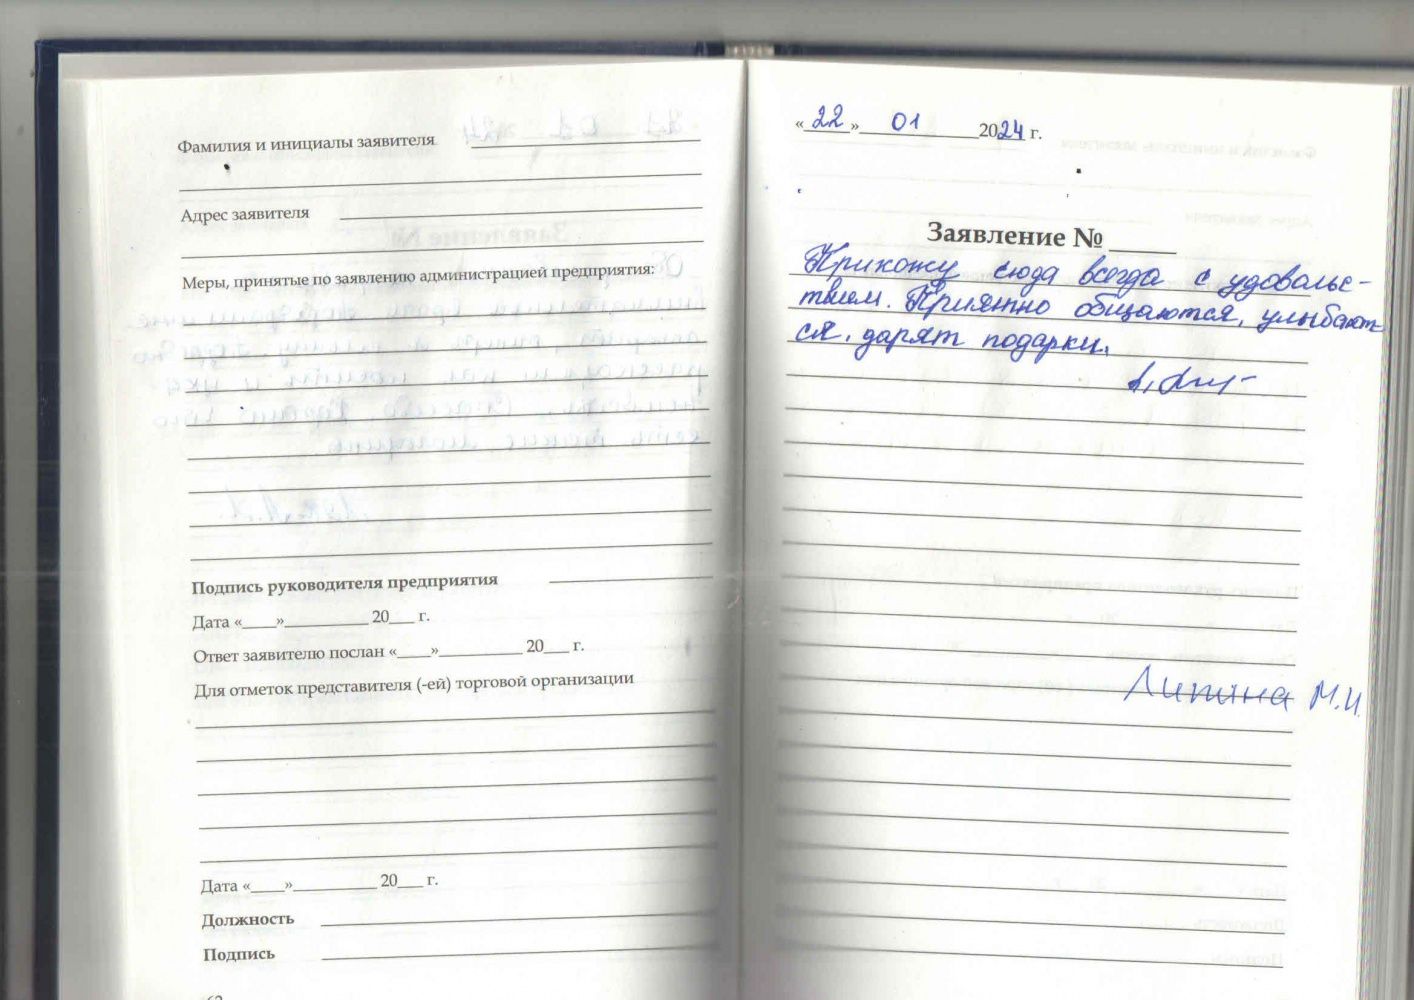 Фамилия и инициалы заявителя
Адрес заявителя
Меры, принятые по заявлению администрацией предприятия:
Подпись руководителя предприятия
Дата «____»__________ 20___ г.
Ответ заявителю послан «____»__________ 20___ г.
Для отметок представителя (-ей) торговой организации
Дата «____»__________ 20___ г.
Должность
Подпись
«22» 01 2024 г.
Заявление № _____
Прихожу сюда всегда с удовольс-
твием. Приятно общаются, улыбают
ся, дарят подарки.
М.И.